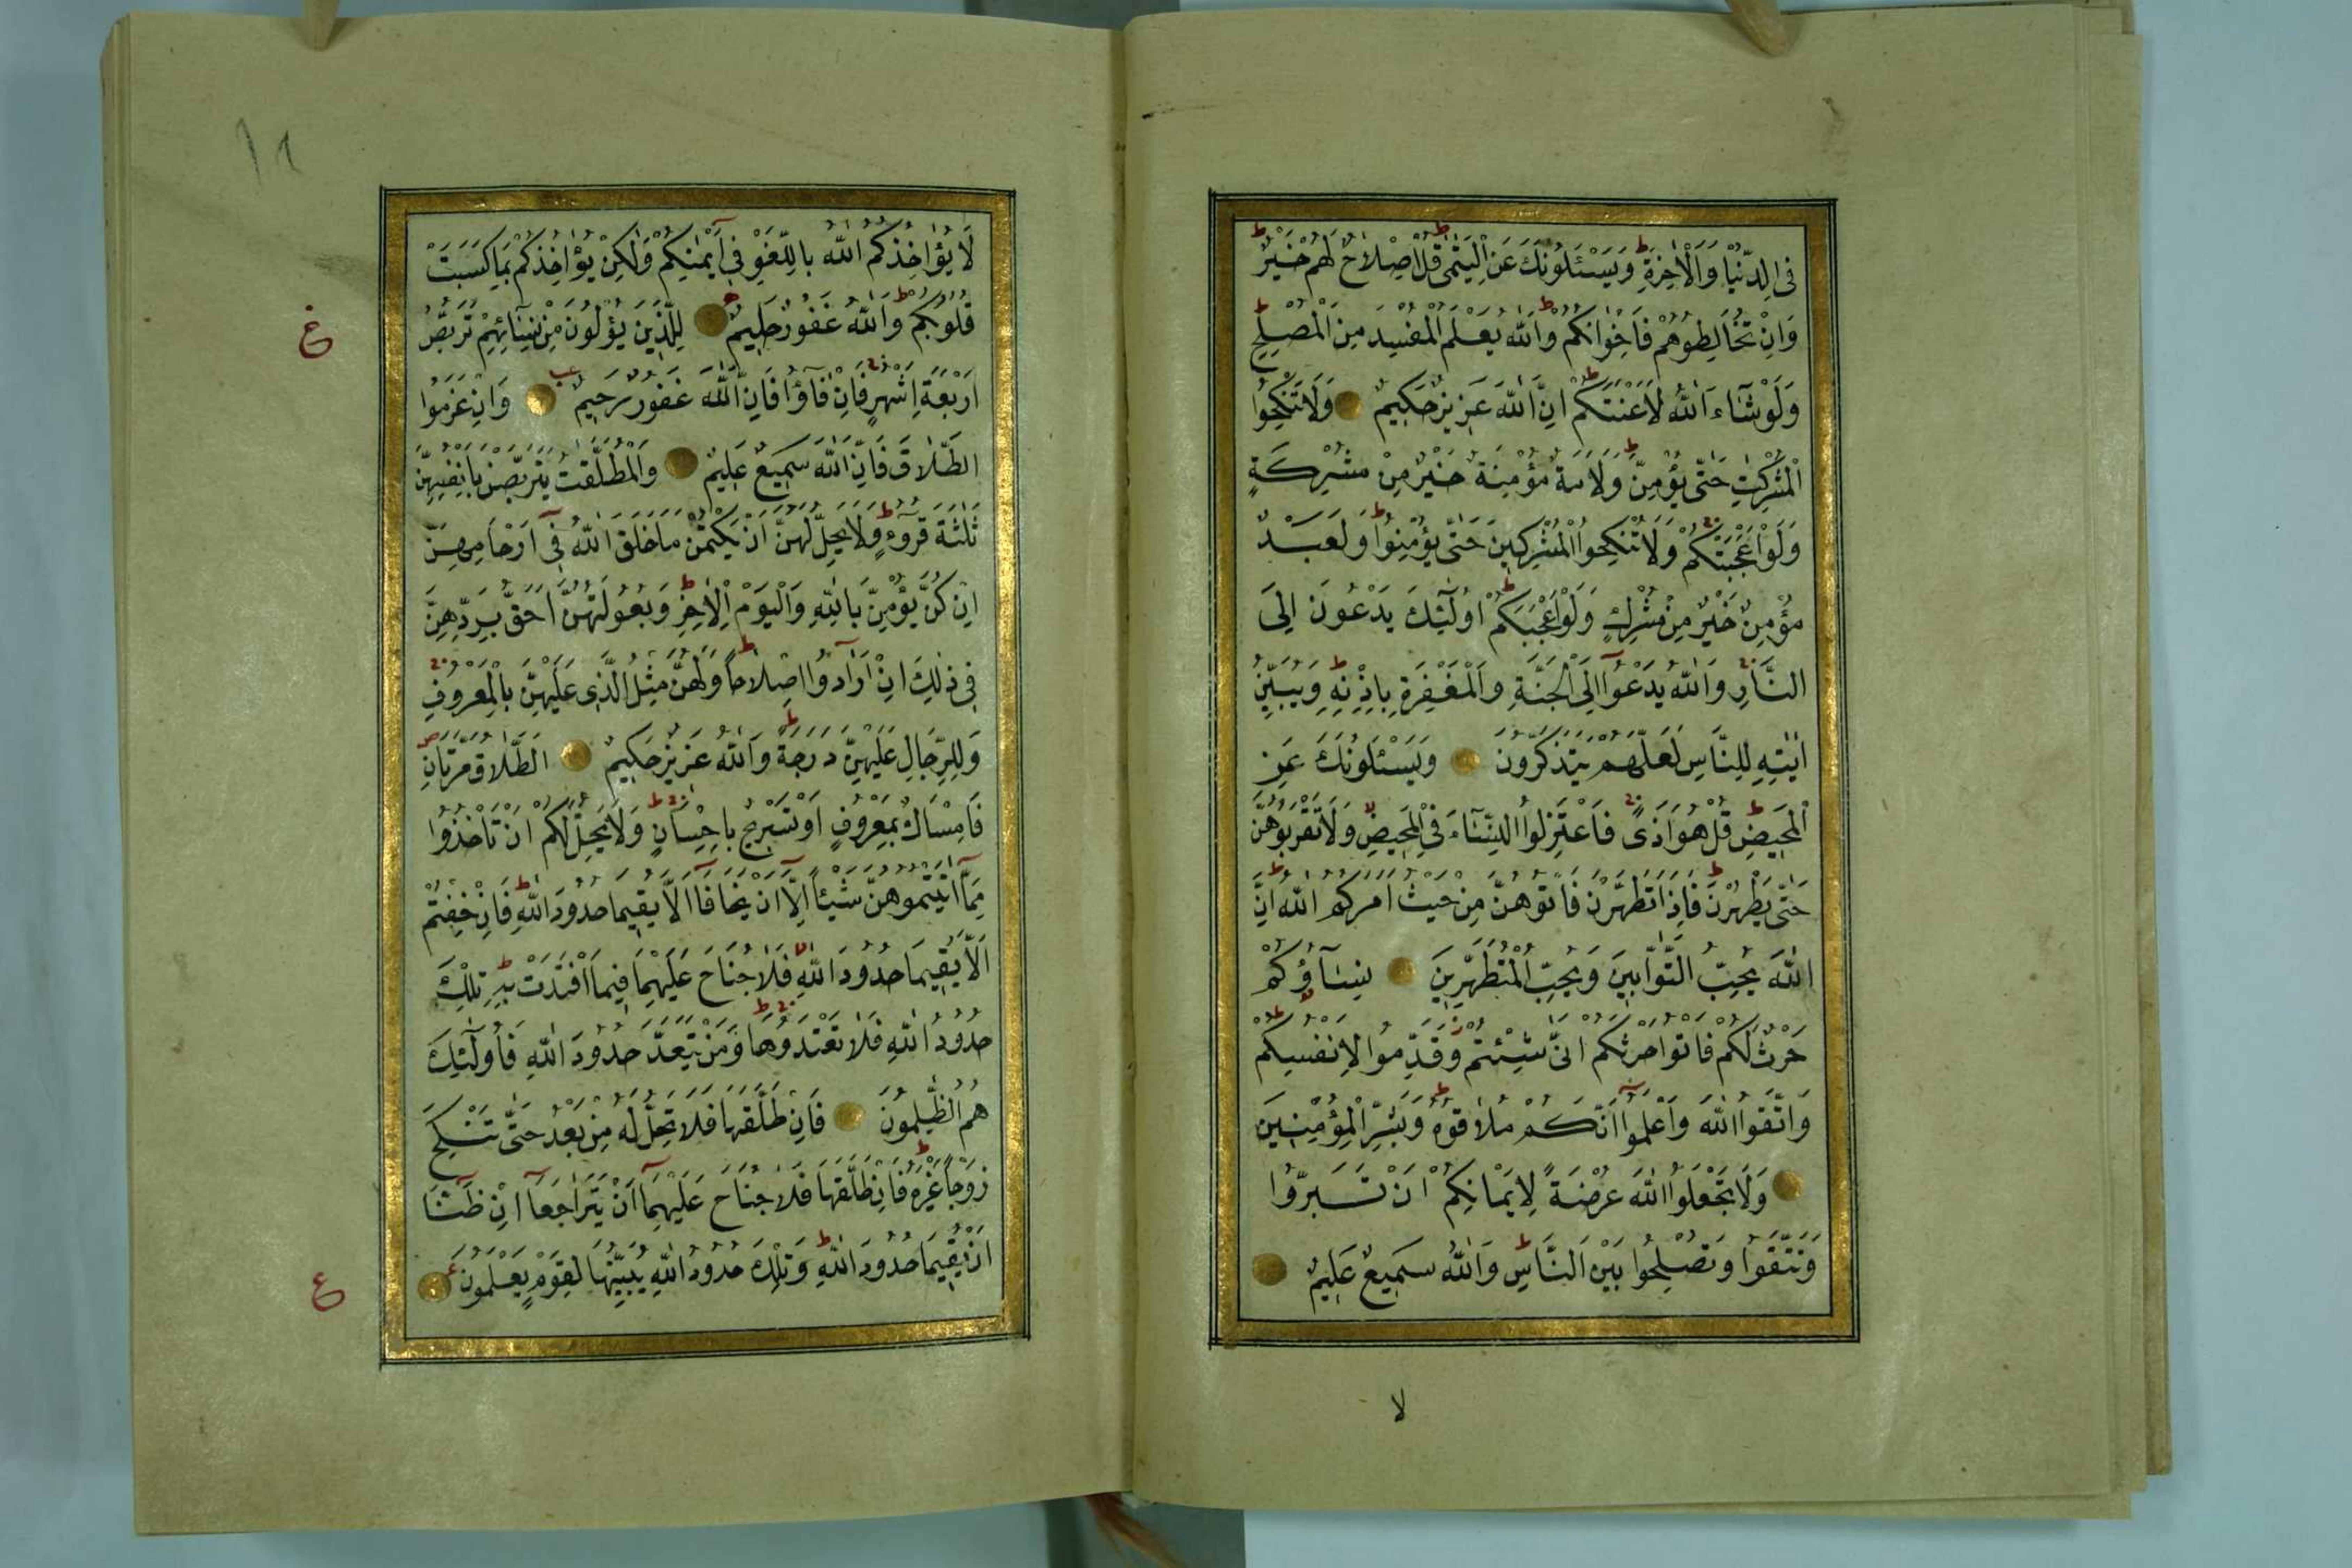 فِى الدُّنْيَا وَالْاٰخِرَةِ وَيَسْـَٔلُونَكَ عَنِ الْيَتٰمٰى قُلْ اِصْلَاحٌ لَهُمْ خَيْرٌ
وَاِنْ تُخَالِطُوهُمْ فَاِخْوَانُكُمْ وَاللّٰهُ يَعْلَمُ الْمُفْسِدَ مِنَ الْمُصْلِحِ
وَلَوْ شَٓاءَ اللّٰهُ لَاَعْنَتَكُمْ اِنَّ اللّٰهَ عَزِيزٌ حَكِيمٌ وَلَا تَنْكِحُوا
الْمُشْرِكٰتِ حَتّٰى يُؤْمِنَّ وَلَاَمَةٌ مُؤْمِنَةٌ خَيْرٌ مِنْ مُشْرِكَةٍ
وَلَوْ اَعْجَبَتْكُمْ وَلَا تُنْكِحُوا الْمُشْرِكِينَ حَتّٰى يُؤْمِنُوا وَلَعَبْدٌ
مُؤْمِنٌ خَيْرٌ مِنْ مُشْرِكٍ وَلَوْ اَعْجَبَكُمْ اُولٰٓئِكَ يَدْعُونَ اِلَى
النَّارِ وَاللّٰهُ يَدْعُٓوا اِلَى الْجَنَّةِ وَالْمَغْفِرَةِ بِاِذْنِهِ وَيُبَيِّنُ
اٰيَاتِهِ لِلنَّاسِ لَعَلَّهُمْ يَتَذَكَّرُونَ وَيَسْـَٔلُونَكَ عَنِ
الْمَحِيضِ قُلْ هُوَ اَذًى فَاعْتَزِلُوا النِّسَٓاءَ فِى الْمَحِيضِ وَلَا تَقْرَبُوهُنَّ
حَتّٰى يَطْهُرْنَ فَاِذَا تَطَهَّرْنَ فَاْتُوهُنَّ مِنْ حَيْثُ اَمَرَكُمُ اللّٰهُ اِنَّ
اللّٰهَ يُحِبُّ التَّوَّابِينَ وَيُحِبُّ الْمُتَطَهِّرِينَ نِسَٓاؤُكُمْ
حَرْثٌ لَكُمْ فَاْتُوا حَرْثَكُمْ اَنّٰى شِئْتُمْ وَقَدِّمُوا لِاَنْفُسِكُمْ
وَاتَّقُوا اللّٰهَ وَاعْلَمُٓوا اَنَّكُمْ مُلَاقُوهُ وَبَشِّرِ الْمُؤْمِنِينَ
وَلَا تَجْعَلُوا اللّٰهَ عُرْضَةً لِاَيْمَانِكُمْ اَنْ تَبَرُّوا
وَتَتَّقُوا وَتُصْلِحُوا بَيْنَ النَّاسِ وَاللّٰهُ سَمِيعٌ عَلِيمٌ
لا
لَا يُؤَاخِذُكُمُ اللّٰهُ بِاللَّغْوِ فِٓى اَيْمٰنِكُمْ وَلٰكِنْ يُؤَاخِذُكُمْ بِمَا كَسَبَتْ
قُلُوبُكُمْ وَاللّٰهُ غَفُورٌ حَلِيمٌ لِلَّذِينَ يُؤْلُونَ مِنْ نِسَٓائِهِمْ تَرَبُّصُ
اَرْبَعَةِ اَشْهُرٍ فَاِنْ فَٓاؤُ فَاِنَّ اللّٰهَ غَفُورٌ رَحِيمٌ وَاِنْ عَزَمُوا
الطَّلَاقَ فَاِنَّ اللّٰهَ سَمِيعٌ عَلِيمٌ وَالْمُطَلَّقٰتُ يَتَرَبَّصْنَ بِاَنْفُسِهِنَّ
ثَلٰثَةَ قُرُٓوءٍ وَلَا يَحِلُّ لَهُنَّ اَنْ يَكْتُمْنَ مَا خَلَقَ اللّٰهُ فِٓى اَرْحَامِهِنَّ
اِنْ كُنَّ يُؤْمِنَّ بِاللّٰهِ وَالْيَوْمِ الْاٰخِرِ وَبُعُولَتُهُنَّ اَحَقُّ بِرَدِّهِنَّ
فِى ذٰلِكَ اِنْ اَرَادُٓوا اِصْلَاحًا وَلَهُنَّ مِثْلُ الَّذِى عَلَيْهِنَّ بِالْمَعْرُوفِ
وَلِلرِّجَالِ عَلَيْهِنَّ دَرَجَةٌ وَاللّٰهُ عَزِيزٌ حَكِيمٌ اَلطَّلَاقُ مَرَّتَانِ
فَاِمْسَاكٌ بِمَعْرُوفٍ اَوْ تَسْرِيحٌ بِاِحْسَانٍ وَلَا يَحِلُّ لَكُمْ اَنْ تَاْخُذُوا
مِمَّٓا اٰتَيْتُمُوهُنَّ شَيْئًا اِلَّٓا اَنْ يَخَافَٓا اَلَّا يُقِيمَا حُدُودَ اللّٰهِ فَاِنْ خِفْتُمْ
اَلَّا يُقِيمَا حُدُودَ اللّٰهِ فَلَا جُنَاحَ عَلَيْهِمَا فِيمَا افْتَدَتْ بِهِ تِلْكَ
حُدُودُ اللّٰهِ فَلَا تَعْتَدُوهَا وَمَنْ يَتَعَدَّ حُدُودَ اللّٰهِ فَاُولٰٓئِكَ
هُمُ الظّٰلِمُونَ فَاِنْ طَلَّقَهَا فَلَا تَحِلُّ لَهُ مِنْ بَعْدُ حَتّٰى تَنْكِحَ
زَوْجًا غَيْرَهُ فَاِنْ طَلَّقَهَا فَلَا جُنَاحَ عَلَيْهِمَٓا اَنْ يَتَرَاجَعَٓا اِنْ ظَنَّٓا
اَنْ يُقِيمَا حُدُودَ اللّٰهِ وَتِلْكَ حُدُودُ اللّٰهِ يُبَيِّنُهَا لِقَوْمٍ يَعْلَمُونَ
ع